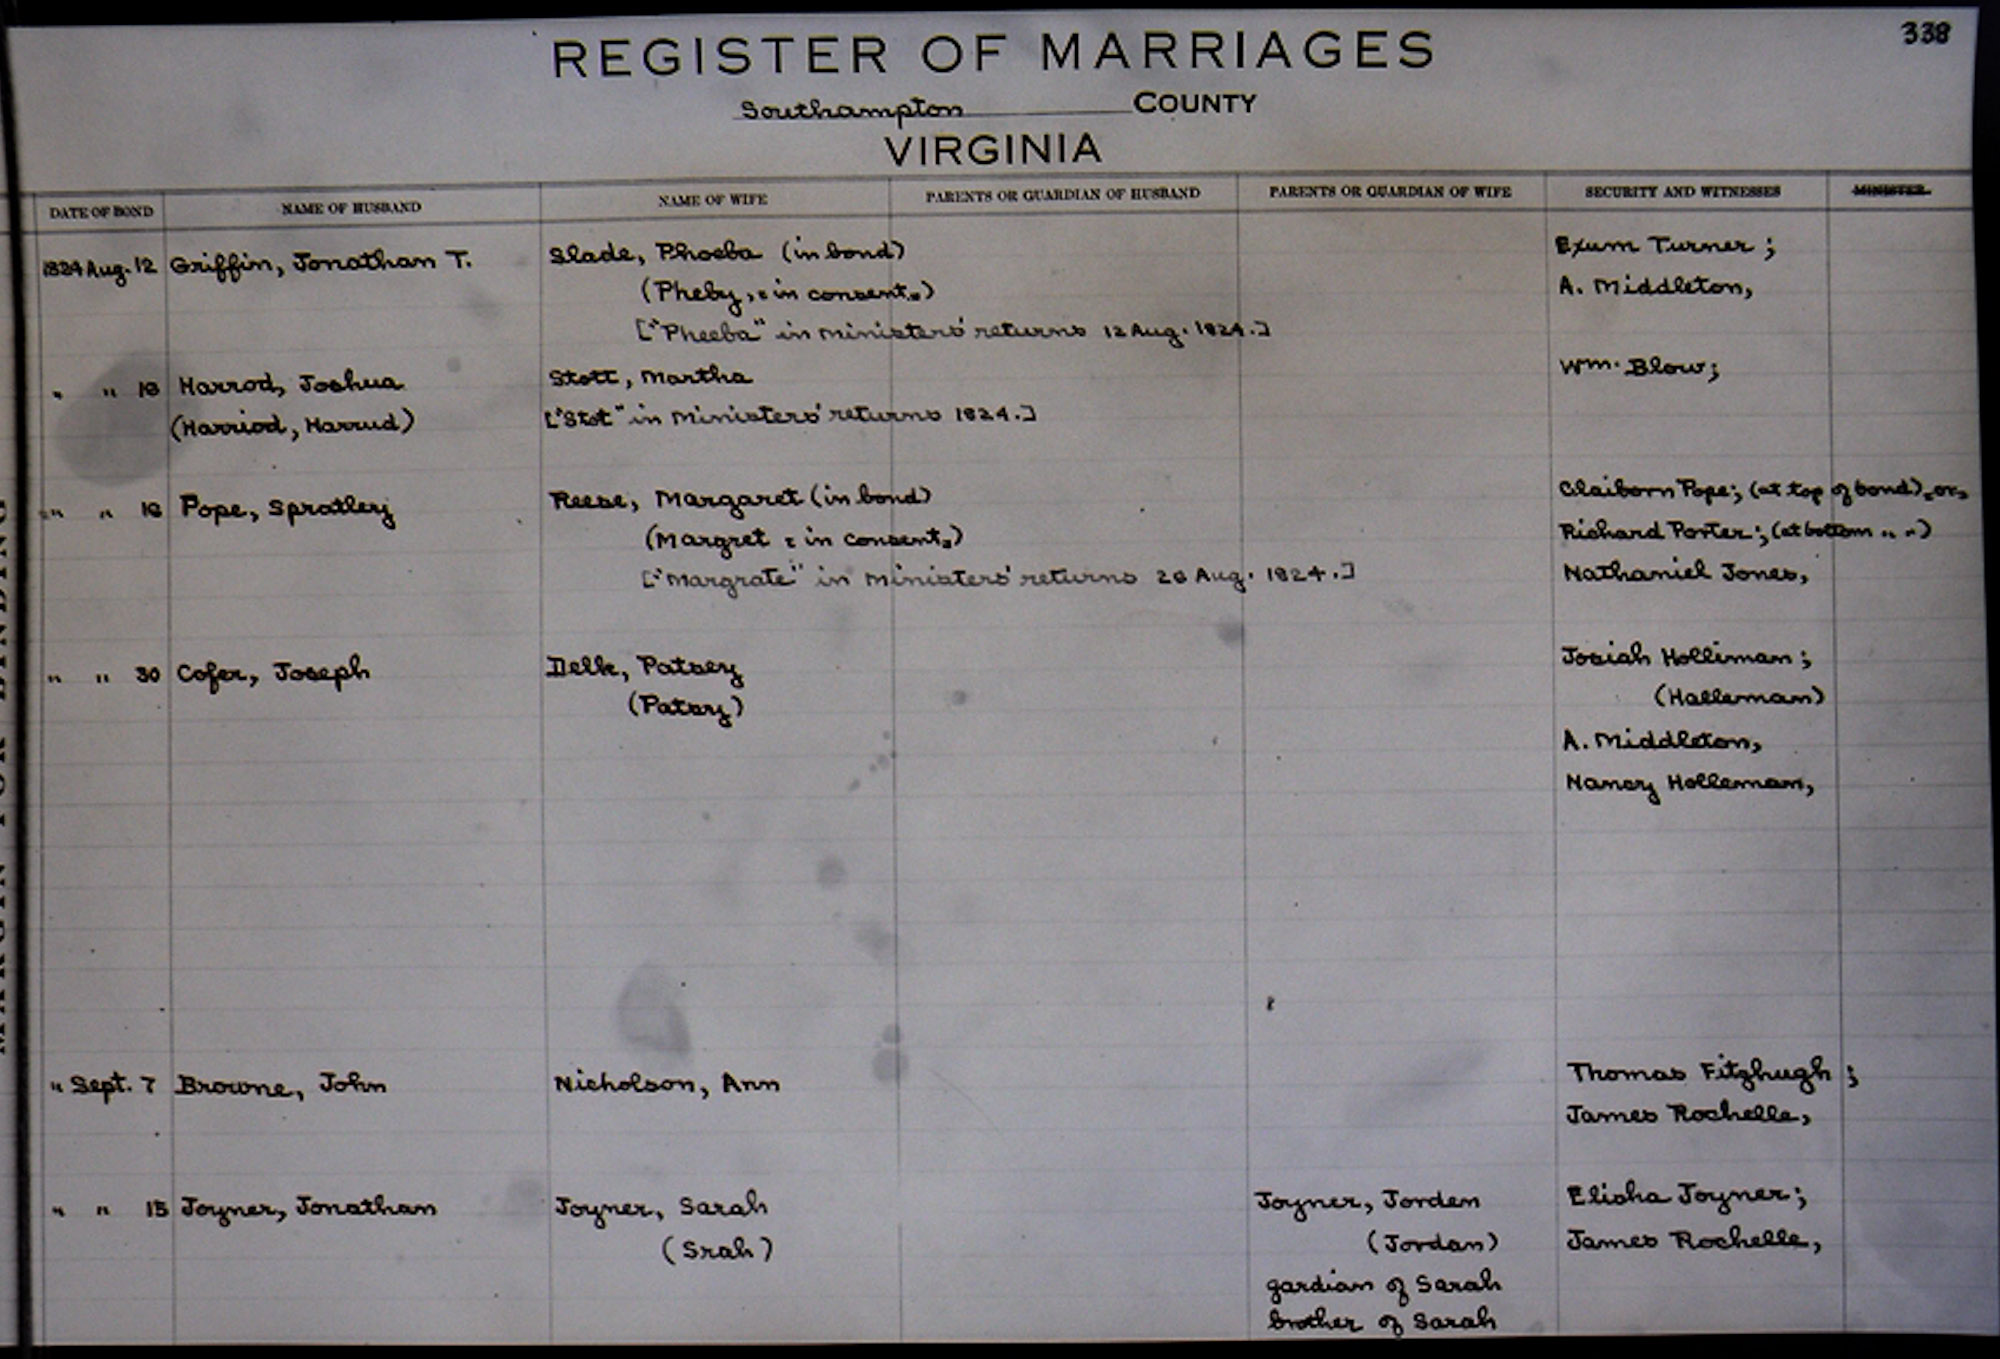 338
REGISTER OF MARRIAGES
Southampton COUNTY
VIRGINIA
DATE OF BOND NAME OF HUSBAND NAME OF WIFE PARENTS OR GUARDIAN OF HUSBAND PARENTS OR GUARDIAN OF WIFE SECURITY AND WITNESSES MINISTER
1824 Aug. 12 Griffin, Jonathan T. Slade, Phoeba (in bond) Exum Turner;
(Pheby, in consent) A. Middleton,
["Pheeba" in Ministers' returns 12 Aug. 1824.]
" " 16 Harrod, Joshua Stott, Martha Wm. Blow;
(Harriod, Harrud) ["Stot" in Ministers' returns 1824.]
" " 16 Pope, Spratley Reese, Margaret (in bond) Claiborn Pope; (at top of bond), or,
(Margret in consent) Richard Porter; (at bottom " ")
["Margrate" in Ministers' returns 26 Aug. 1824.] Nathaniel Jones,
" " 30 Cofer, Joseph Delk, Patsey Josiah Holliman;
(Patsy) (Halleman)
A. Middleton,
Nancy Holleman,
" Sept. 7 Browne, John Nicholson, Ann Thomas Fitzhugh;
James Rochelle,
" " 15 Joyner, Jonathan Joyner, Sarah Joyner, Jorden Elisha Joyner;
(Srah) (Jordan) James Rochelle,
gardian of Sarah
brother of Sarah